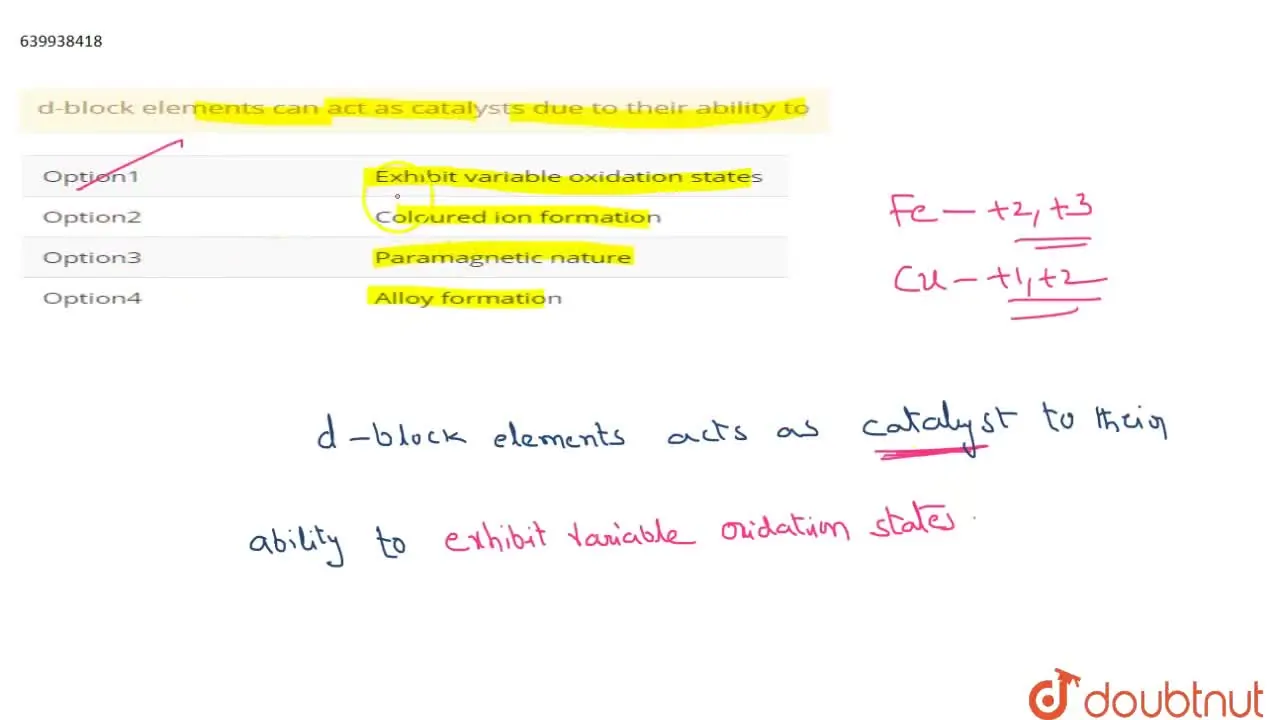 639938418
d-block elements can act as catalysts due to their ability to
Option1 Exhibit variable oxidation states
Option2 Coloured ion formation
Option3 Paramagnetic nature
Option4 Alloy formation
Fe — +2, +3
Cu — +1, +2
d-block elements acts as catalyst to their
ability to exhibit variable oxidation states.
doubtnut